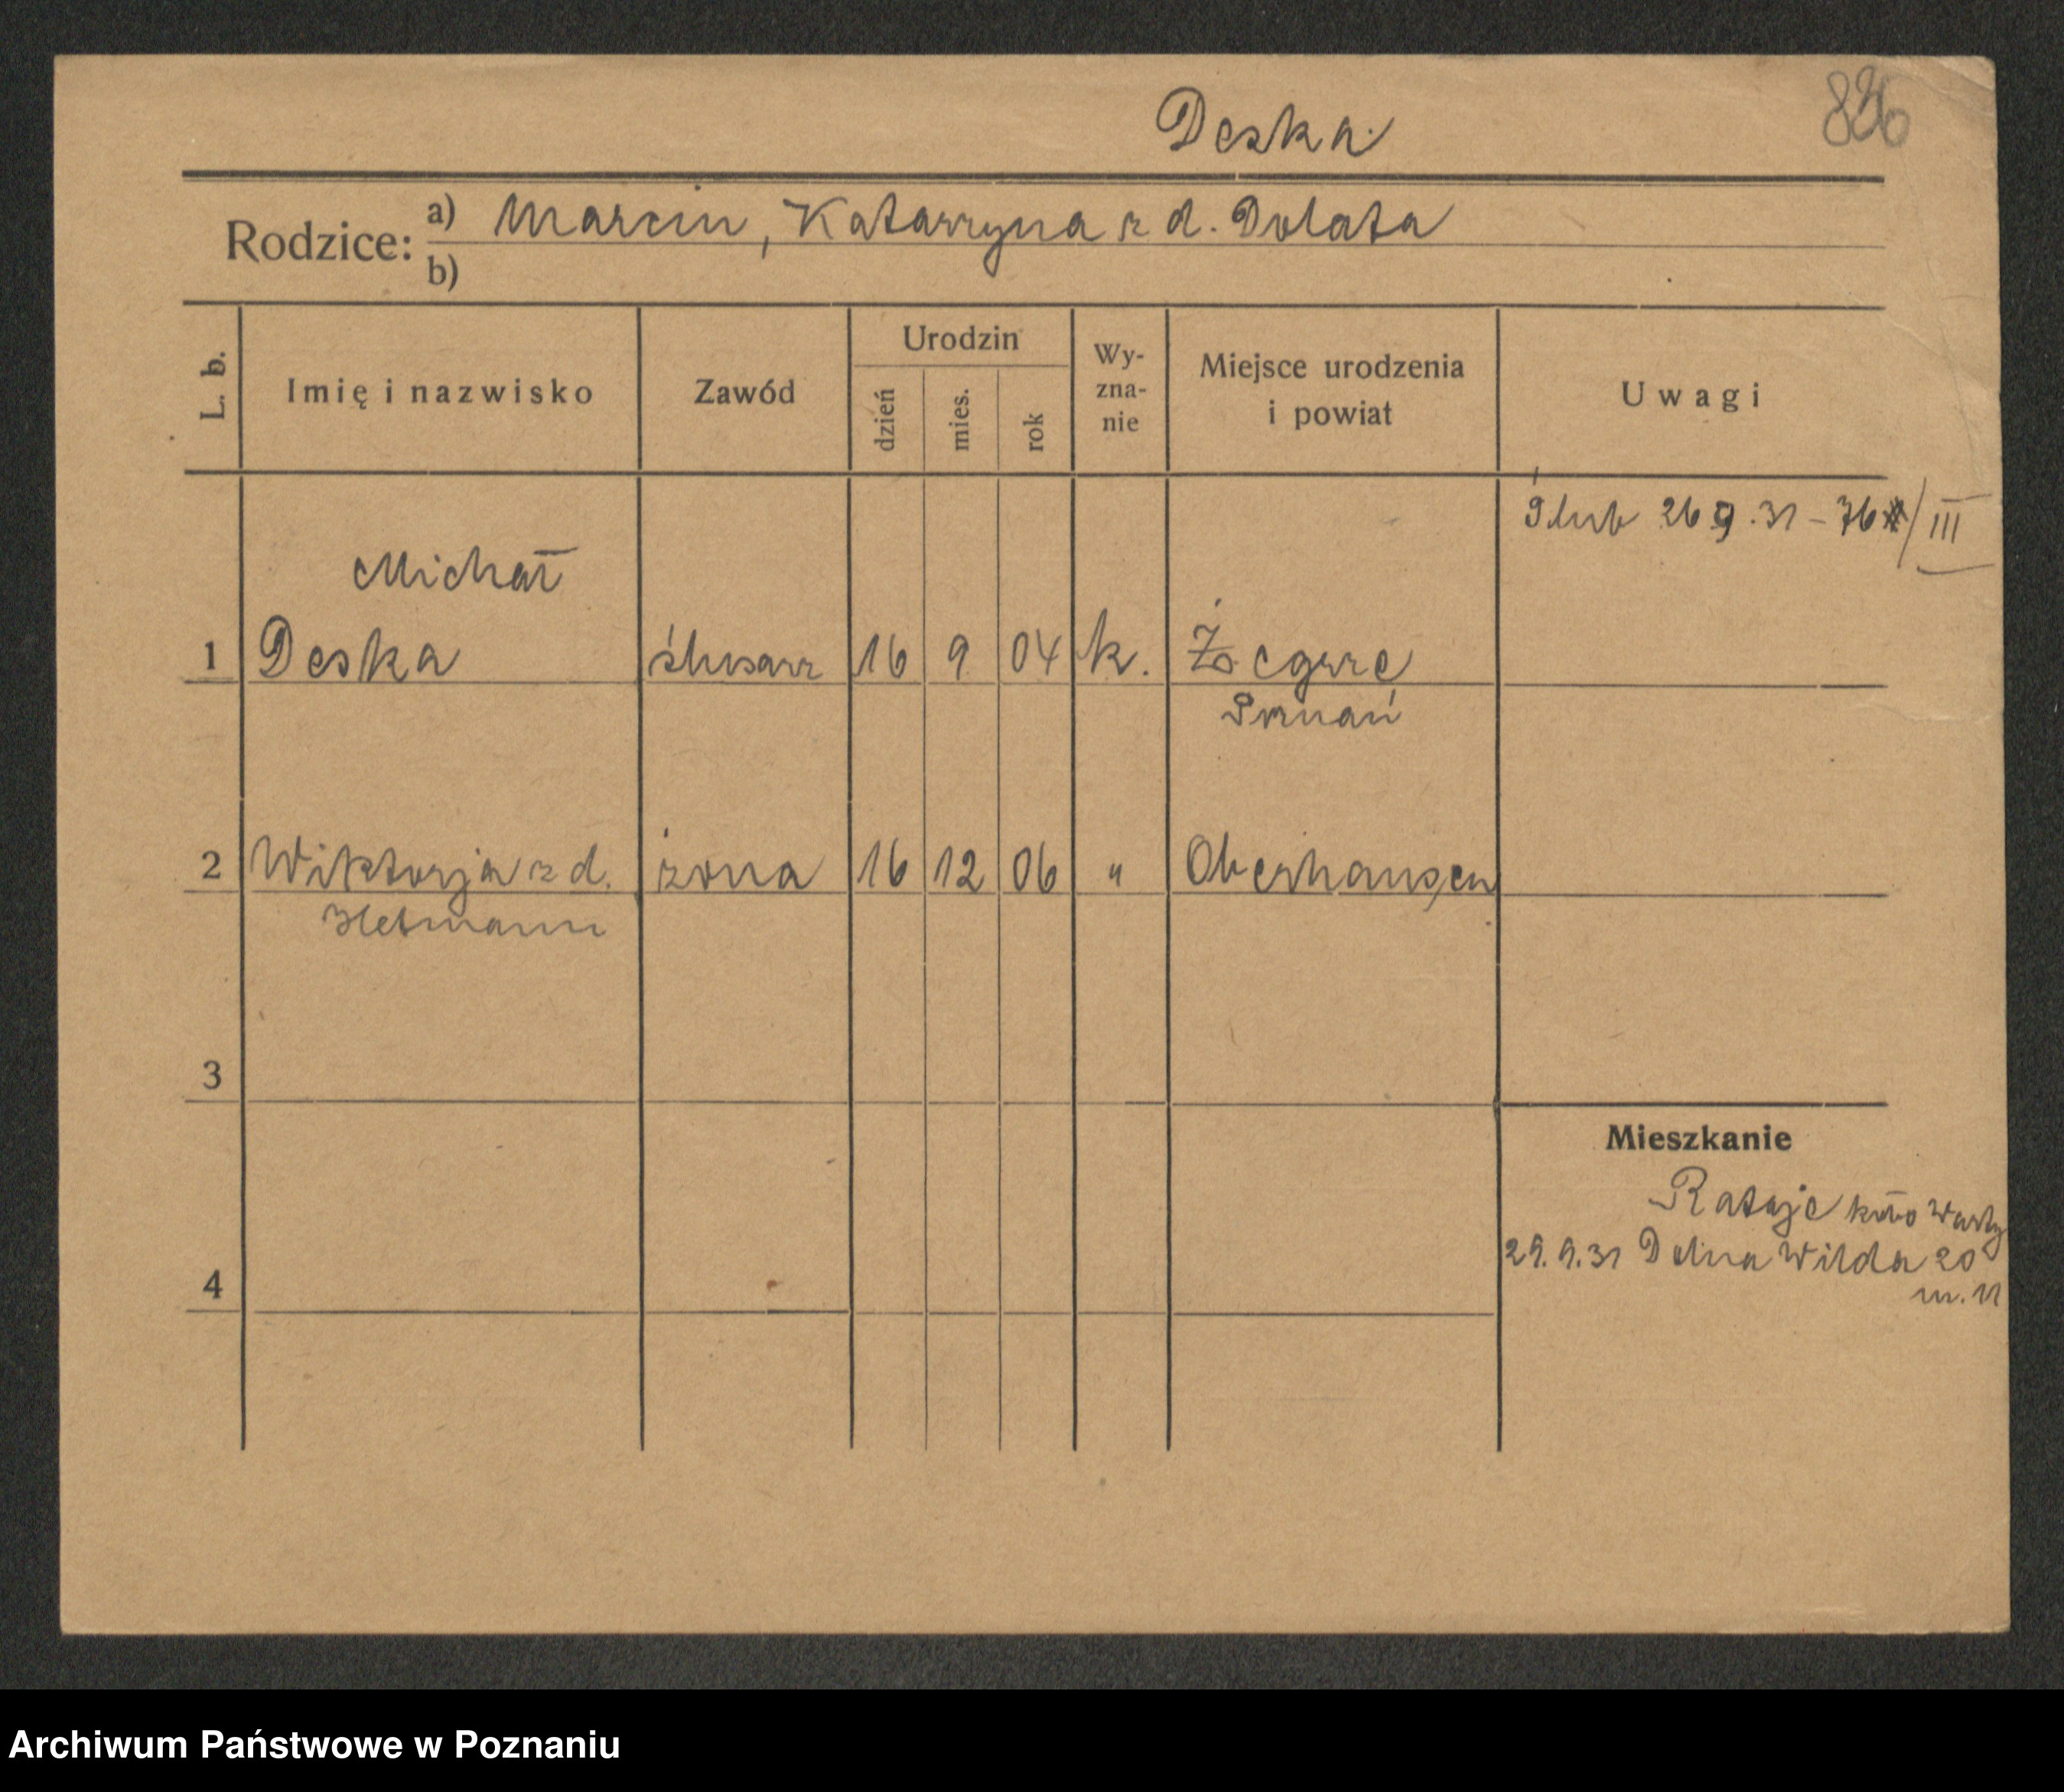 Deska
Rodzice: a) Marcin, Katarzyna z d. Dolata
b)
L. b. Imię i nazwisko Zawód Urodzin dzień mies. rok Wy-zna-nie Miejsce urodzenia i powiat Uwagi
Ślub 26 9.31 – /III
Michał
1 Deska ślusarz 16 9 04 k. Żegrze
Poznań
2 Wiktorja z d. żona 16 12 06 " Oberhausen
Hetmann
3
Mieszkanie
Rataje koło Warty
29.9.31 Dolna Wilda 20
m. 11
4
Archiwum Państwowe w Poznaniu